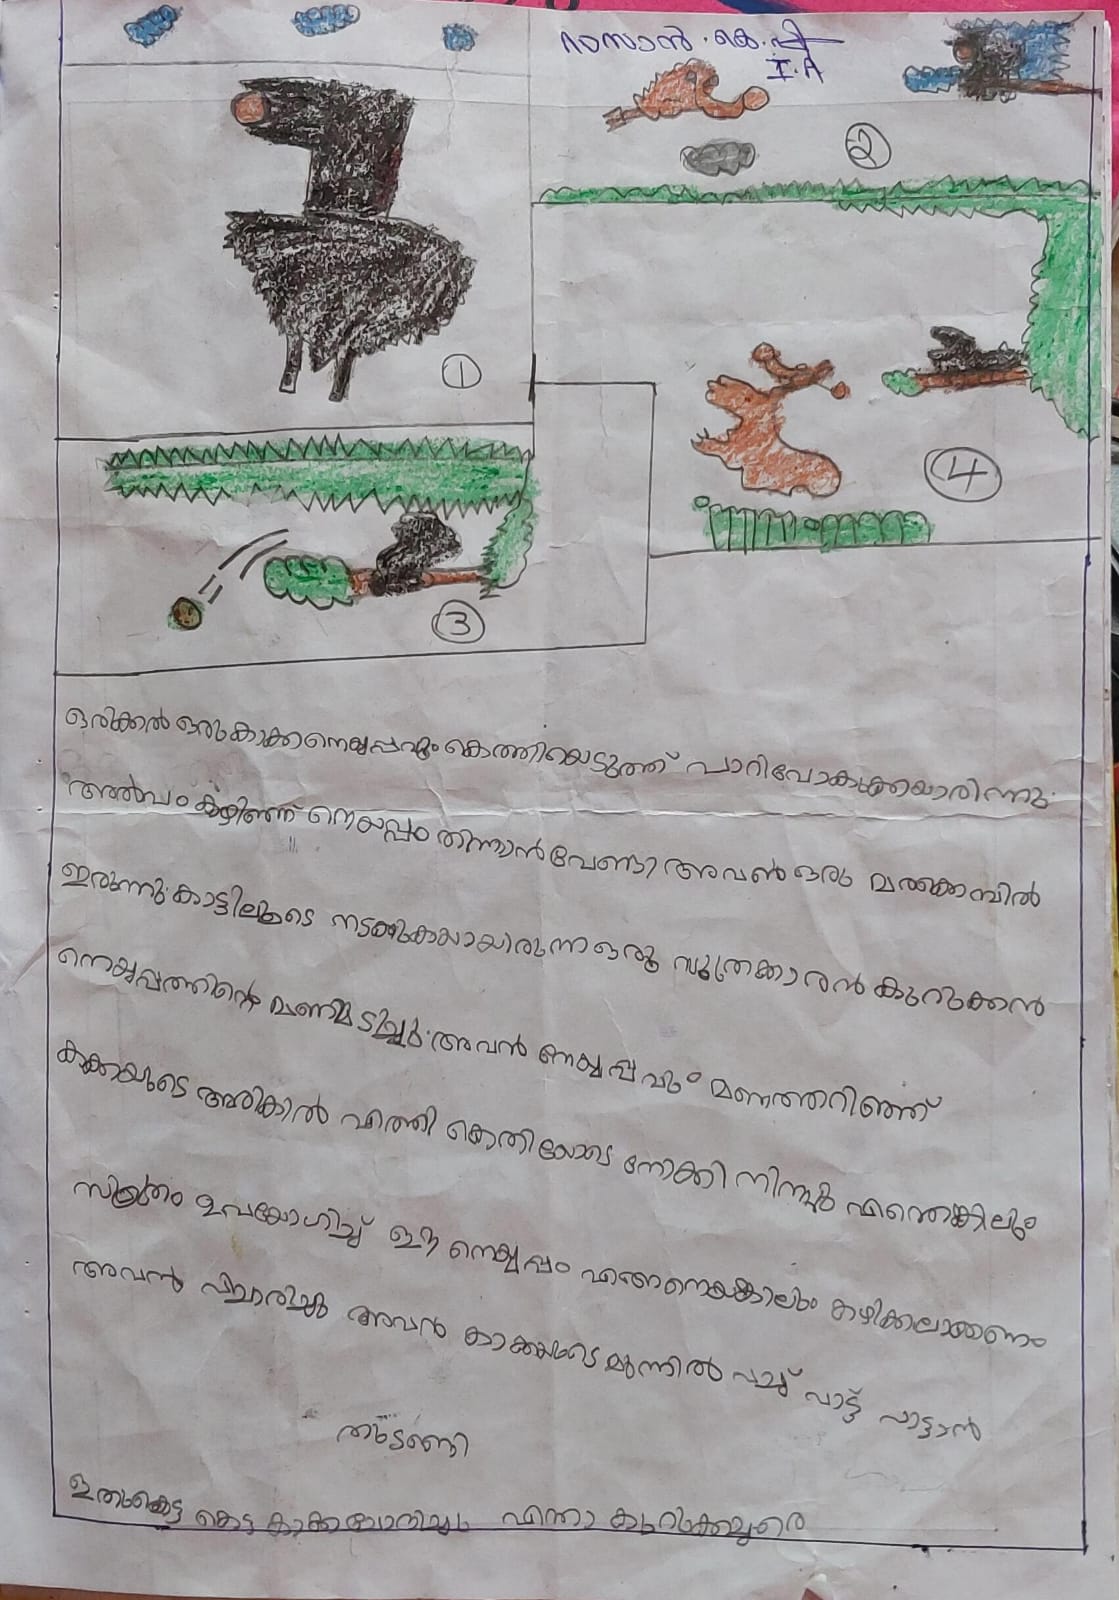 റസാൻ.കെ.പി
I.A
1
2
3
4
ഒരിക്കൽ ഒരു കാക്ക നെയ്യപ്പവും കൊത്തിയെടുത്ത് പാറിപോകുകയാരിന്നു.
അൽപം കഴിഞ്ഞ് നെയ്യപ്പം തിന്നാൻ വേണ്ടി അവൻ ഒരു മരക്കൊമ്പിൽ
ഇരുന്നു. കാട്ടിലൂടെ നടക്കുകയായിരുന്ന ഒരു സൂത്രക്കാരൻ കുറുക്കൻ
നെയ്യപ്പത്തിന്റെ മണമടിച്ചു. അവൻ നെയ്യപ്പവും മണത്തറിഞ്ഞ്
കാക്കയുടെ അരികിൽ എത്തി കൊതിയോടെ നോക്കി നിന്നു എന്തെങ്കിലും
സൂത്രം ഉപയോഗിച്ച് ഈ നെയ്യപ്പം എങ്ങനെയെങ്കിലും കഴിക്കലാക്കണം
അവൻ വിചാരിച്ചു അവൻ കാക്കയുടെ മുന്നിൽ വച്ച് പാട്ട് പാട്ടാൻ
തുടങ്ങി
ഇതുകെട്ട കെട്ട കാക്ക ചോദിച്ചു എന്താ കുറുക്കച്ചരെ